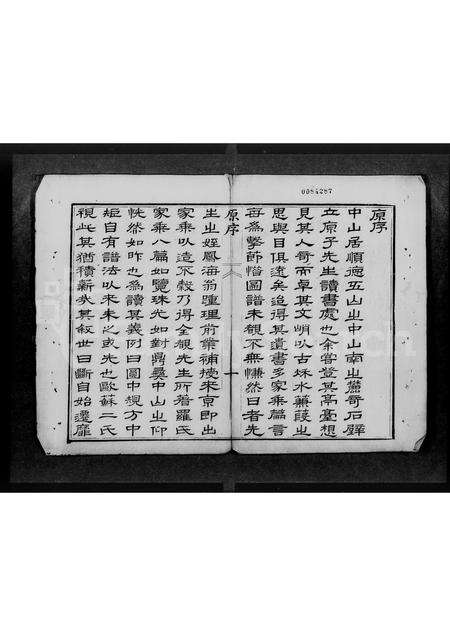 0084287
原序
中山居順德五山之中山南之麓奇石壁
立原子先生讀書處也余嘗登其亭臺想
見其人奇而卓其文峭以古秌水蒹葭之
思與目俱遠矣迨得其遺書多家乘篇言
再為擊節惜圖譜未覩不無慊然日者先
原序
一
生之姪鳳海翁踵理前業補授來京即出
家乘以造不穀乃得全覩先生所譜羅氏
家乘八篇如覽珠光如對鼎彝中山之仰
恍然如昨也為讀其義例曰圖中規方中
矩自有譜法以來未之或先也歐蘇二氏
視此其猶積薪矣其敘世曰斷自始遷靡